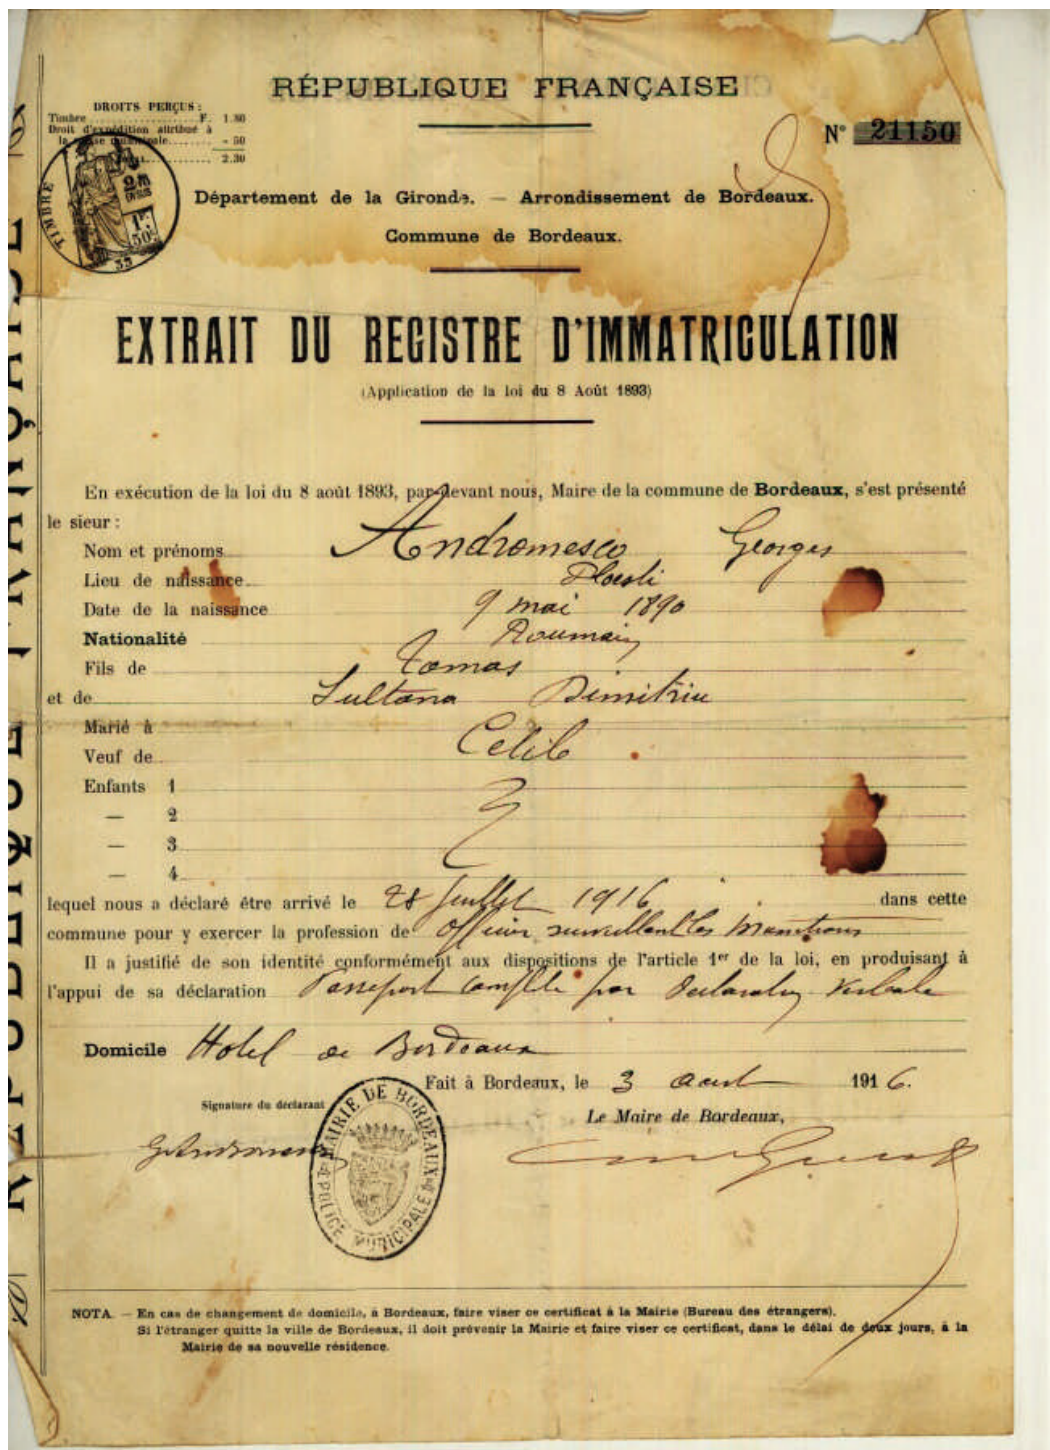 RÉPUBLIQUE FRANÇAISE
DROITS PERÇUS :
Timbre F. 1.80
Droit d'expédition attribué à
la municipale - 50
2.30
N° 21150
TIMBRE
Département de la Gironde. — Arrondissement de Bordeaux.
Commune de Bordeaux.
EXTRAIT DU REGISTRE D'IMMATRICULATION
(Application de la loi du 8 Août 1893)
En exécution de la loi du 8 août 1893, par-devant nous, Maire de la commune de Bordeaux, s'est présenté
le sieur :
Nom et prénoms Andronesco Georges
Lieu de naissance Ploesti
Date de la naissance 9 mai 1890
Nationalité Roumain
Fils de Tomas
et de Sultana Dimitriu
Marié à
Veuf de Celib
Enfants 1
— 2
— 3
— 4
lequel nous a déclaré être arrivé le 28 Juillet 1916 dans cette
commune pour y exercer la profession de Officier surveillant les Munitions
Il a justifié de son identité conformément aux dispositions de l'article 1er de la loi, en produisant à
l'appui de sa déclaration Passeport complété par Declaration Verbale
Domicile Hotel de Bordeaux
Fait à Bordeaux, le 3 Aout 1916.
Signature du déclarant
Le Maire de Bordeaux,
MAIRIE DE BORDEAUX
POLICE MUNICIPALE
NOTA. — En cas de changement de domicile, à Bordeaux, faire viser ce certificat à la Mairie (Bureau des étrangers).
Si l'étranger quitte la ville de Bordeaux, il doit prévenir la Mairie et faire viser ce certificat, dans le délai de deux jours, à la
Mairie de sa nouvelle résidence.